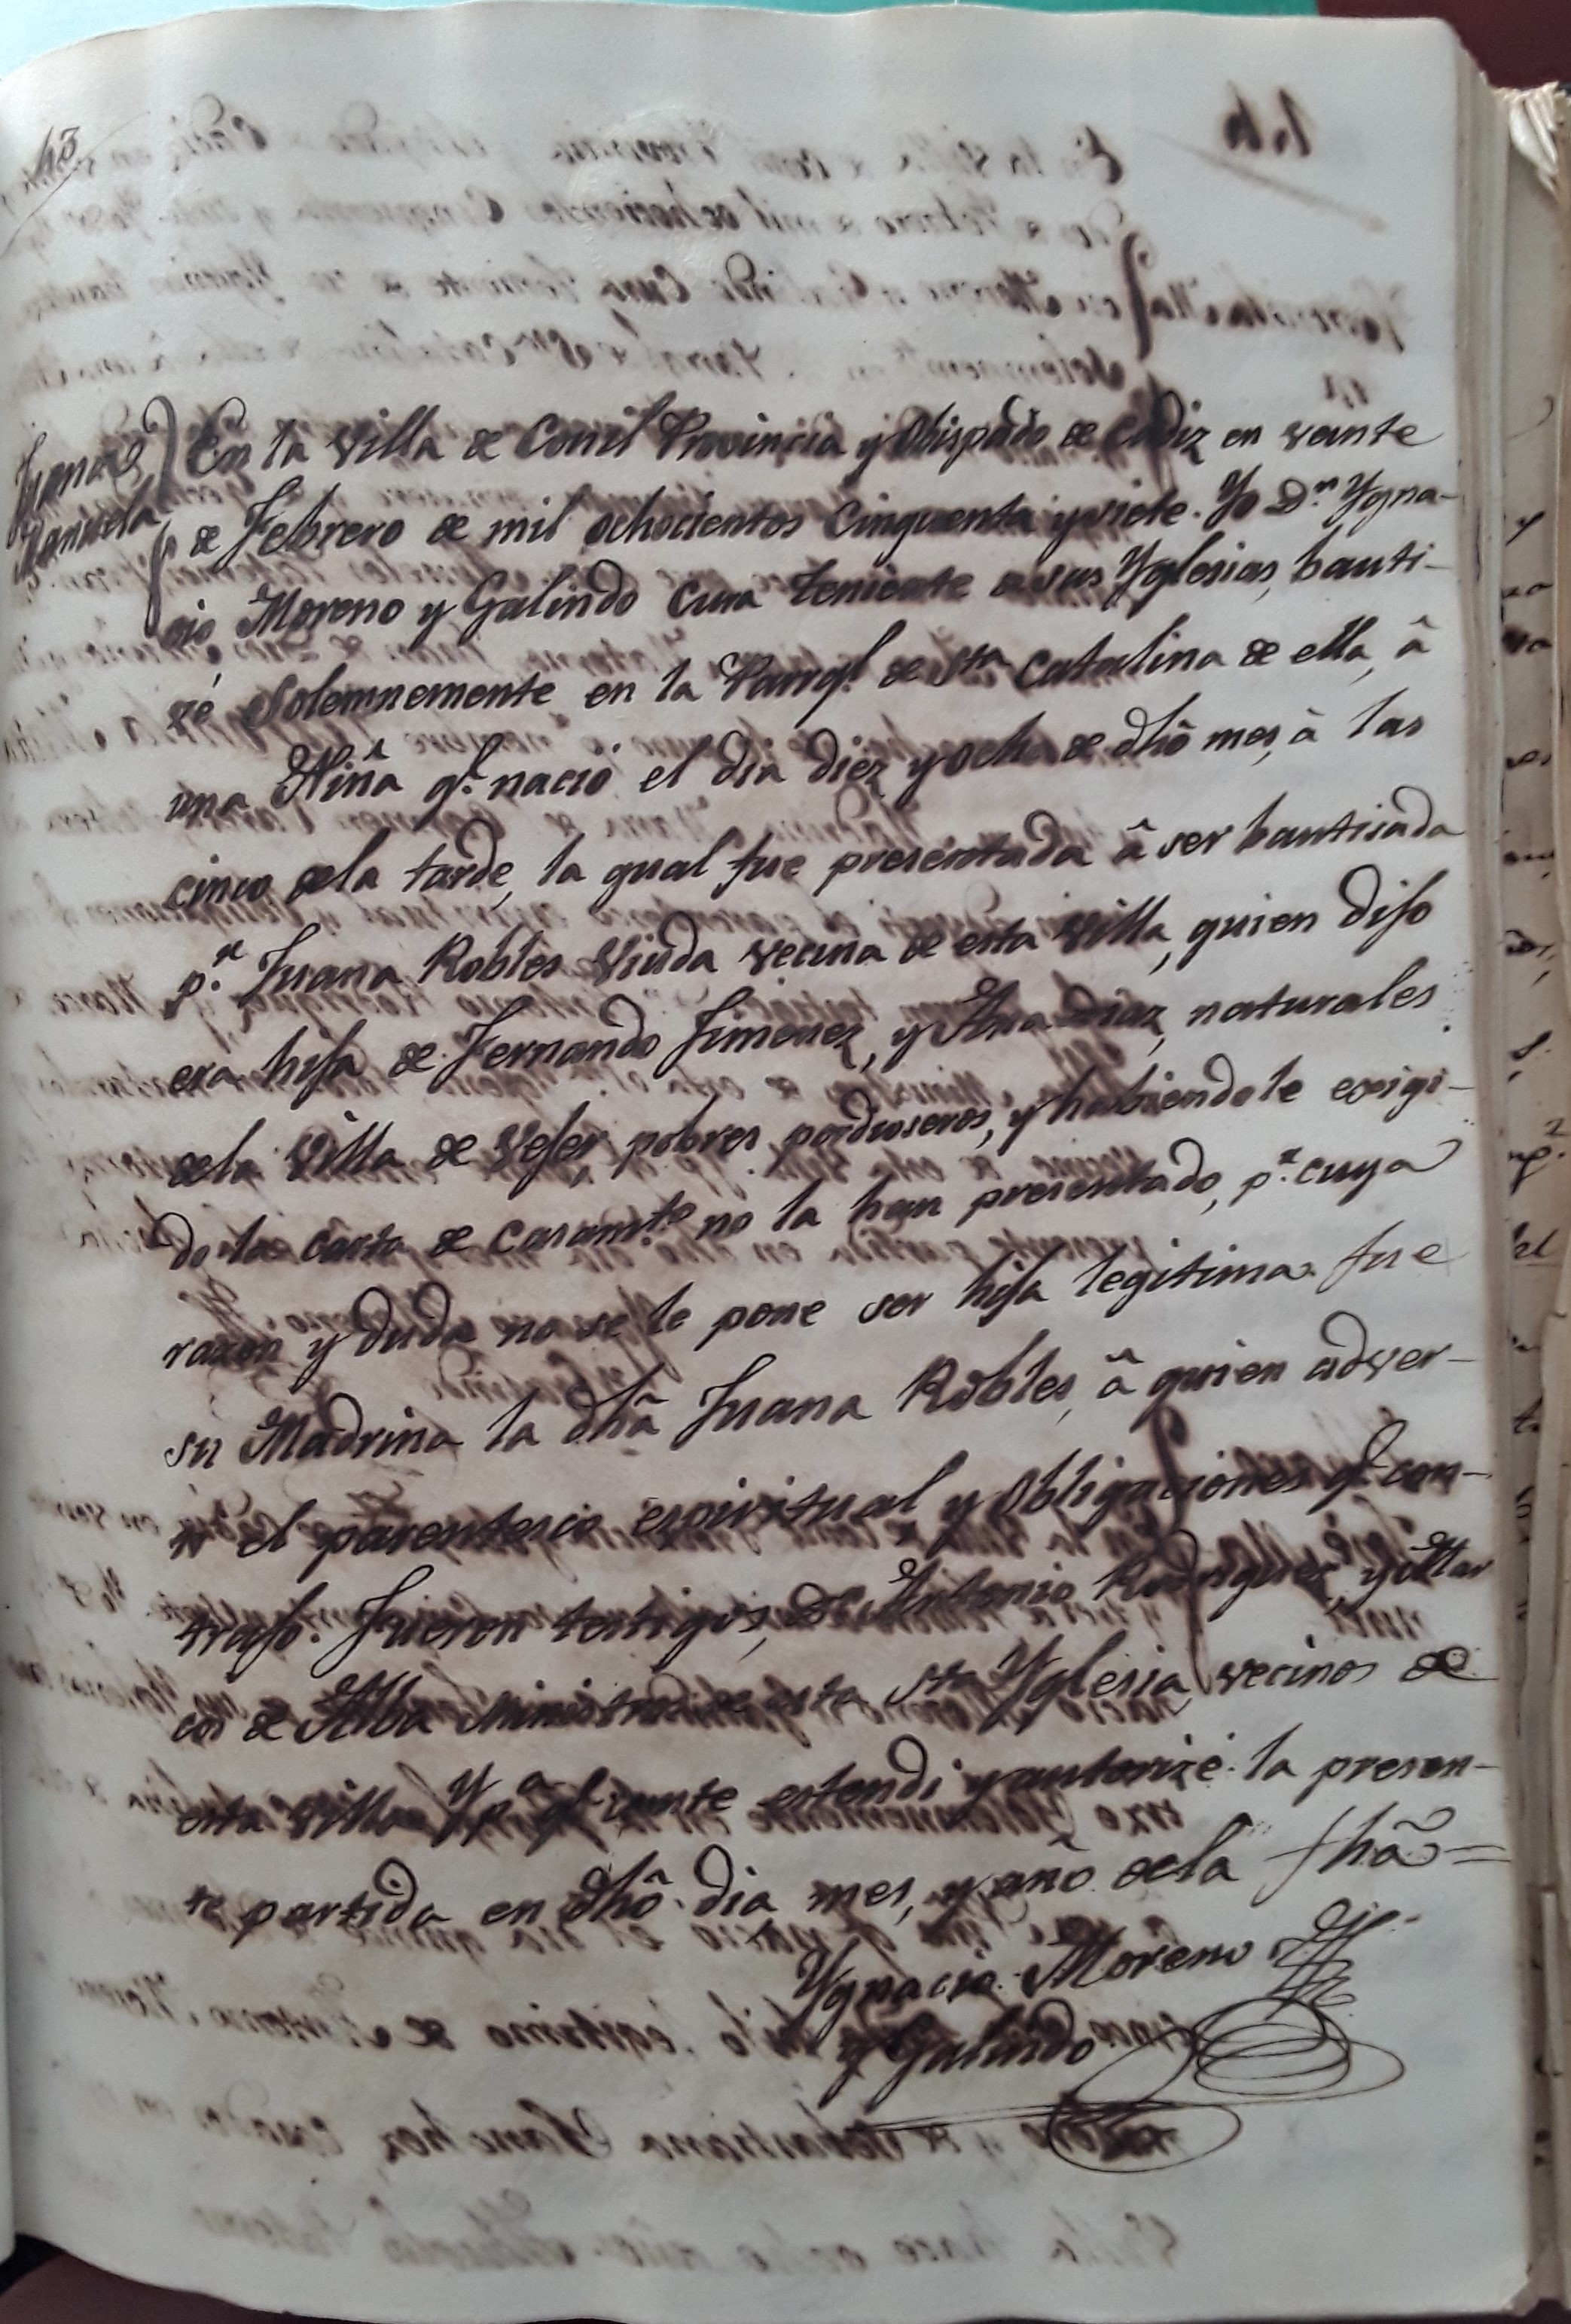 43
Juana
Manuela
En la villa de Conil Provincia y Obispado de Cadiz en veinte
de Febrero de mil ochocientos cinquenta y siete. Yo Dn. Ygna-
cio Moreno y Galindo Cura teniente de sus Yglesias, bauti-
zé Solemnemente en la Parrql. de Sta. Catalina de ella, â
una Niña q.e nació el dia diez y ocho de dhô mes, à las
cinco dela tarde, la qual fue presentada â ser bautisada
p.r Juana Robles Viuda vecina de esta Villa, quien dijo
era hija de Fernando Jimenez, y Ana Diaz, naturales
dela Villa de Vejer, pobres pordioseros, y habiendole exigi-
do la carta de casamto. no la han presentado, p.r cuya
razon y duda no se le pone ser hija legitima. fue
su Madrina la dhâ Juana Robles, â quien adver-
tí el parentesco espiritual y obligaciones q.e con-
trajo. Fueron testigos, Dn. Antonio Rodriguez y Mar
cos de Alba Ministros de esta Sta. Yglesia vecinos de
esta villa Y p.a q.e conste estendi y autorizé la presen-
te partida en dhô dia mes, y año dela fhâ =
Ygnacio Moreno
y Galindo